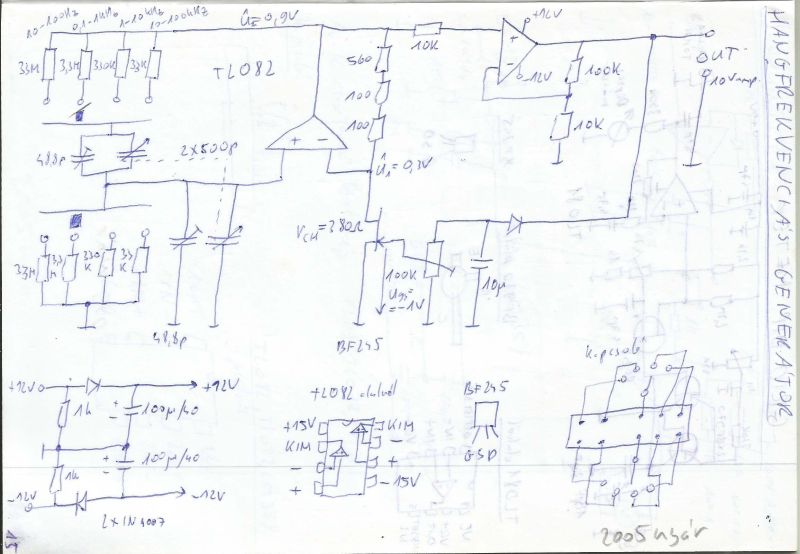 HANGFREKVENCIÁS GENERÁTOR
10-100Hz
0,1-1kHz
1-10kHz
10-100kHz
33M
3,3M
330K
33K
TL082
Û2=0,9V
560
100
100
10K
+12V
-12V
100K
10K
OUT
48,8p
2x500p
Û1=0,3V
33M
3,3M
330K
33K
48,8p
VCH=380Ω
100K
Ugs=-1V
10µ
BF245
+12V
+12V
1K
100µ/40
1K
100µ/40
-12V
-12V
2x1N4007
TL082 alulról
+15V
KIM
-
+
KIM
-
+
-15V
BF245
GSD
2005 nyár
15